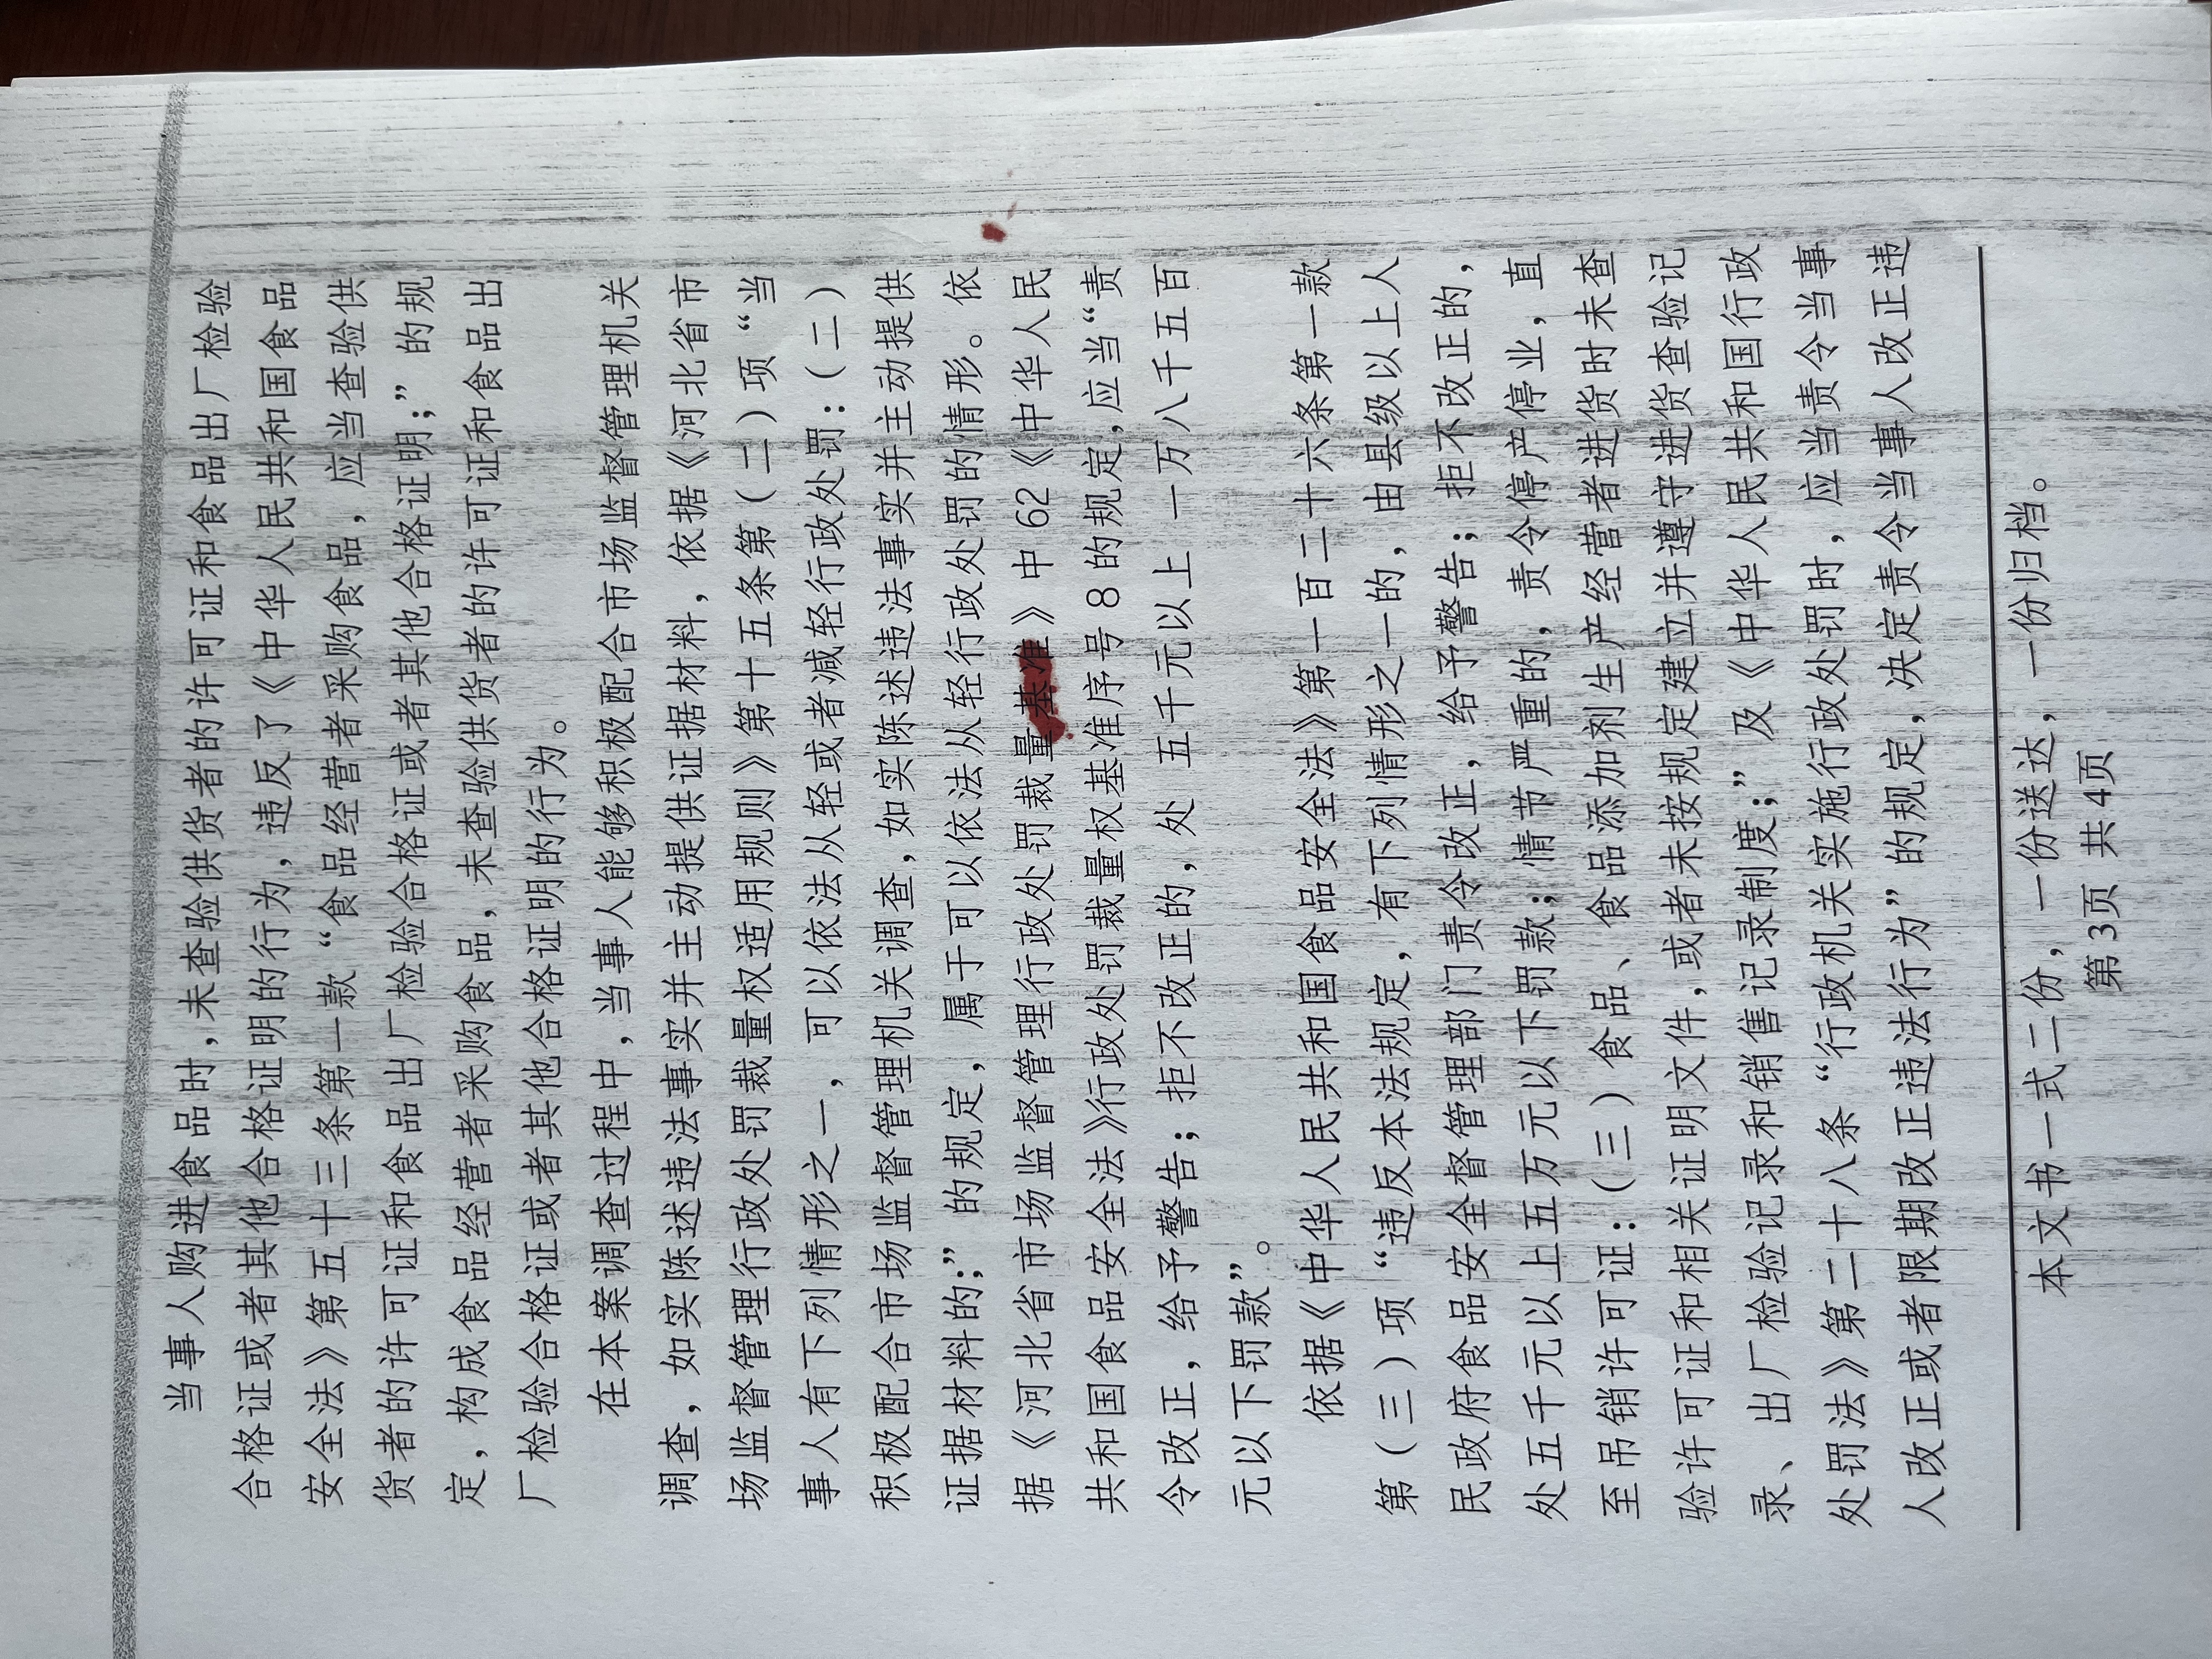 当事人购进食品时,未查验供货者的许可证和食品出厂检验
合格证或者其他合格证明的行为，违反了《中华人民共和国食品
安全法》第五十三条第一款“食品经营者采购食品，应当查验供
货者的许可证和食品出厂检验合格证或者其他合格证明;”的规
定，构成食品经营者采购食品，未查验供货者的许可证和食品出
厂检验合格证或者其他合格证明的行为。
在本案调查过程中，当事人能够积极配合市场监督管理机关
调查，如实陈述违法事实并主动提供证据材料，依据《河北省市
场监督管理行政处罚裁量权适用规则》第十五条第（二）项“当
事人有下列情形之一，可以依法从轻或者减轻行政处罚:（二）
积极配合市场监督管理机关调查,如实陈述违法事实并主动提供
证据材料的;”的规定，属于可以依法从轻行政处罚的情形。依
据《河北省市场监督管理行政处罚裁量基准》中 62《中华人民
共和国食品安全法》行政处罚裁量权基准序号 8 的规定,应当“责
令改正，给予警告；拒不改正的，处 五千元以上 一万八千五百
元以下罚款”。
依据《中华人民共和国食品安全法》第一百二十六条第一款
第（三）项“违反本法规定，有下列情形之一的，由县级以上人
民政府食品安全监督管理部门责令改正，给予警告；拒不改正的，
处五千元以上五万元以下罚款；情节严重的，责令停产停业，直
至吊销许可证:（三）食品、食品添加剂生产经营者进货时未查
验许可证和相关证明文件,或者未按规定建立并遵守进货查验记
录、出厂检验记录和销售记录制度;”及《中华人民共和国行政
处罚法》第二十八条“行政机关实施行政处罚时，应当责令当事
人改正或者限期改正违法行为”的规定，决定责令当事人改正违
本文书一式二份，一份送达，一份归档。
第3页 共4页